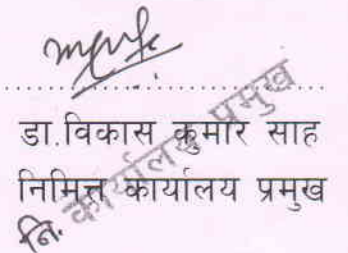 डा.विकास कुमार साह
निमित्त कार्यालय प्रमुख
नि. कार्यालय प्रमुख